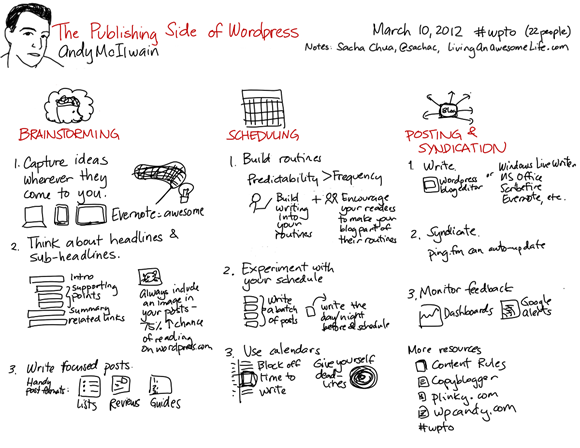 The Publishing Side of Wordpress
Andy McIlwain
March 10, 2012 #wpto (22people)
Notes: Sacha Chua, @sachac, LivingAnAwesomeLife.com
BRAINSTORMING
1. Capture ideas
wherever they
come to you.
Evernote = awesome
2. Think about headlines &
sub-headlines.
Intro
supporting
points
Summary
related links
Always include
an image in
your posts -
75% ↑ chance
of reading
on wordpress.com
3. Write focused posts.
Handy
post formats:
Lists
Reviews
Guides
SCHEDULING
1. Build routines
Predictability > Frequency
Build
writing
into
your
routines
+
Encourage
your readers
to make your
blog part of
their routines
2. Experiment with
your schedule
Write
a batch
of posts
write the
day/night
before & schedule
3. Use calendars
Block off
time to
write
Give yourself
dead-
lines
POSTING &
SYNDICATION
Blog
1. Write.
Wordpress
blog editor
or
Windows Live Writer
MS Office
Scribefire
Evernote, etc.
2. Syndicate.
ping.fm can auto-update
3. Monitor feedback
Dashboards
Google
alerts
More resources
Content Rules
Copyblogger
plinky.com
wpcandy.com
#wpto